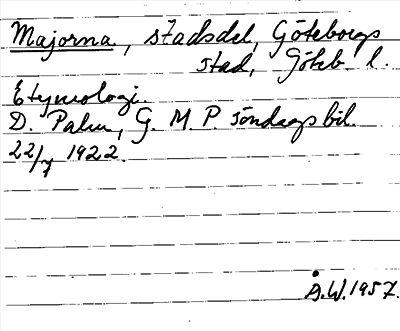 Majorna, stadsdel, Göteborgs
stad, Göteb. l.
Etymologi.
D. Palm, G. M. P. söndagsbil.
22/7 1922.
Å.W. 1957.